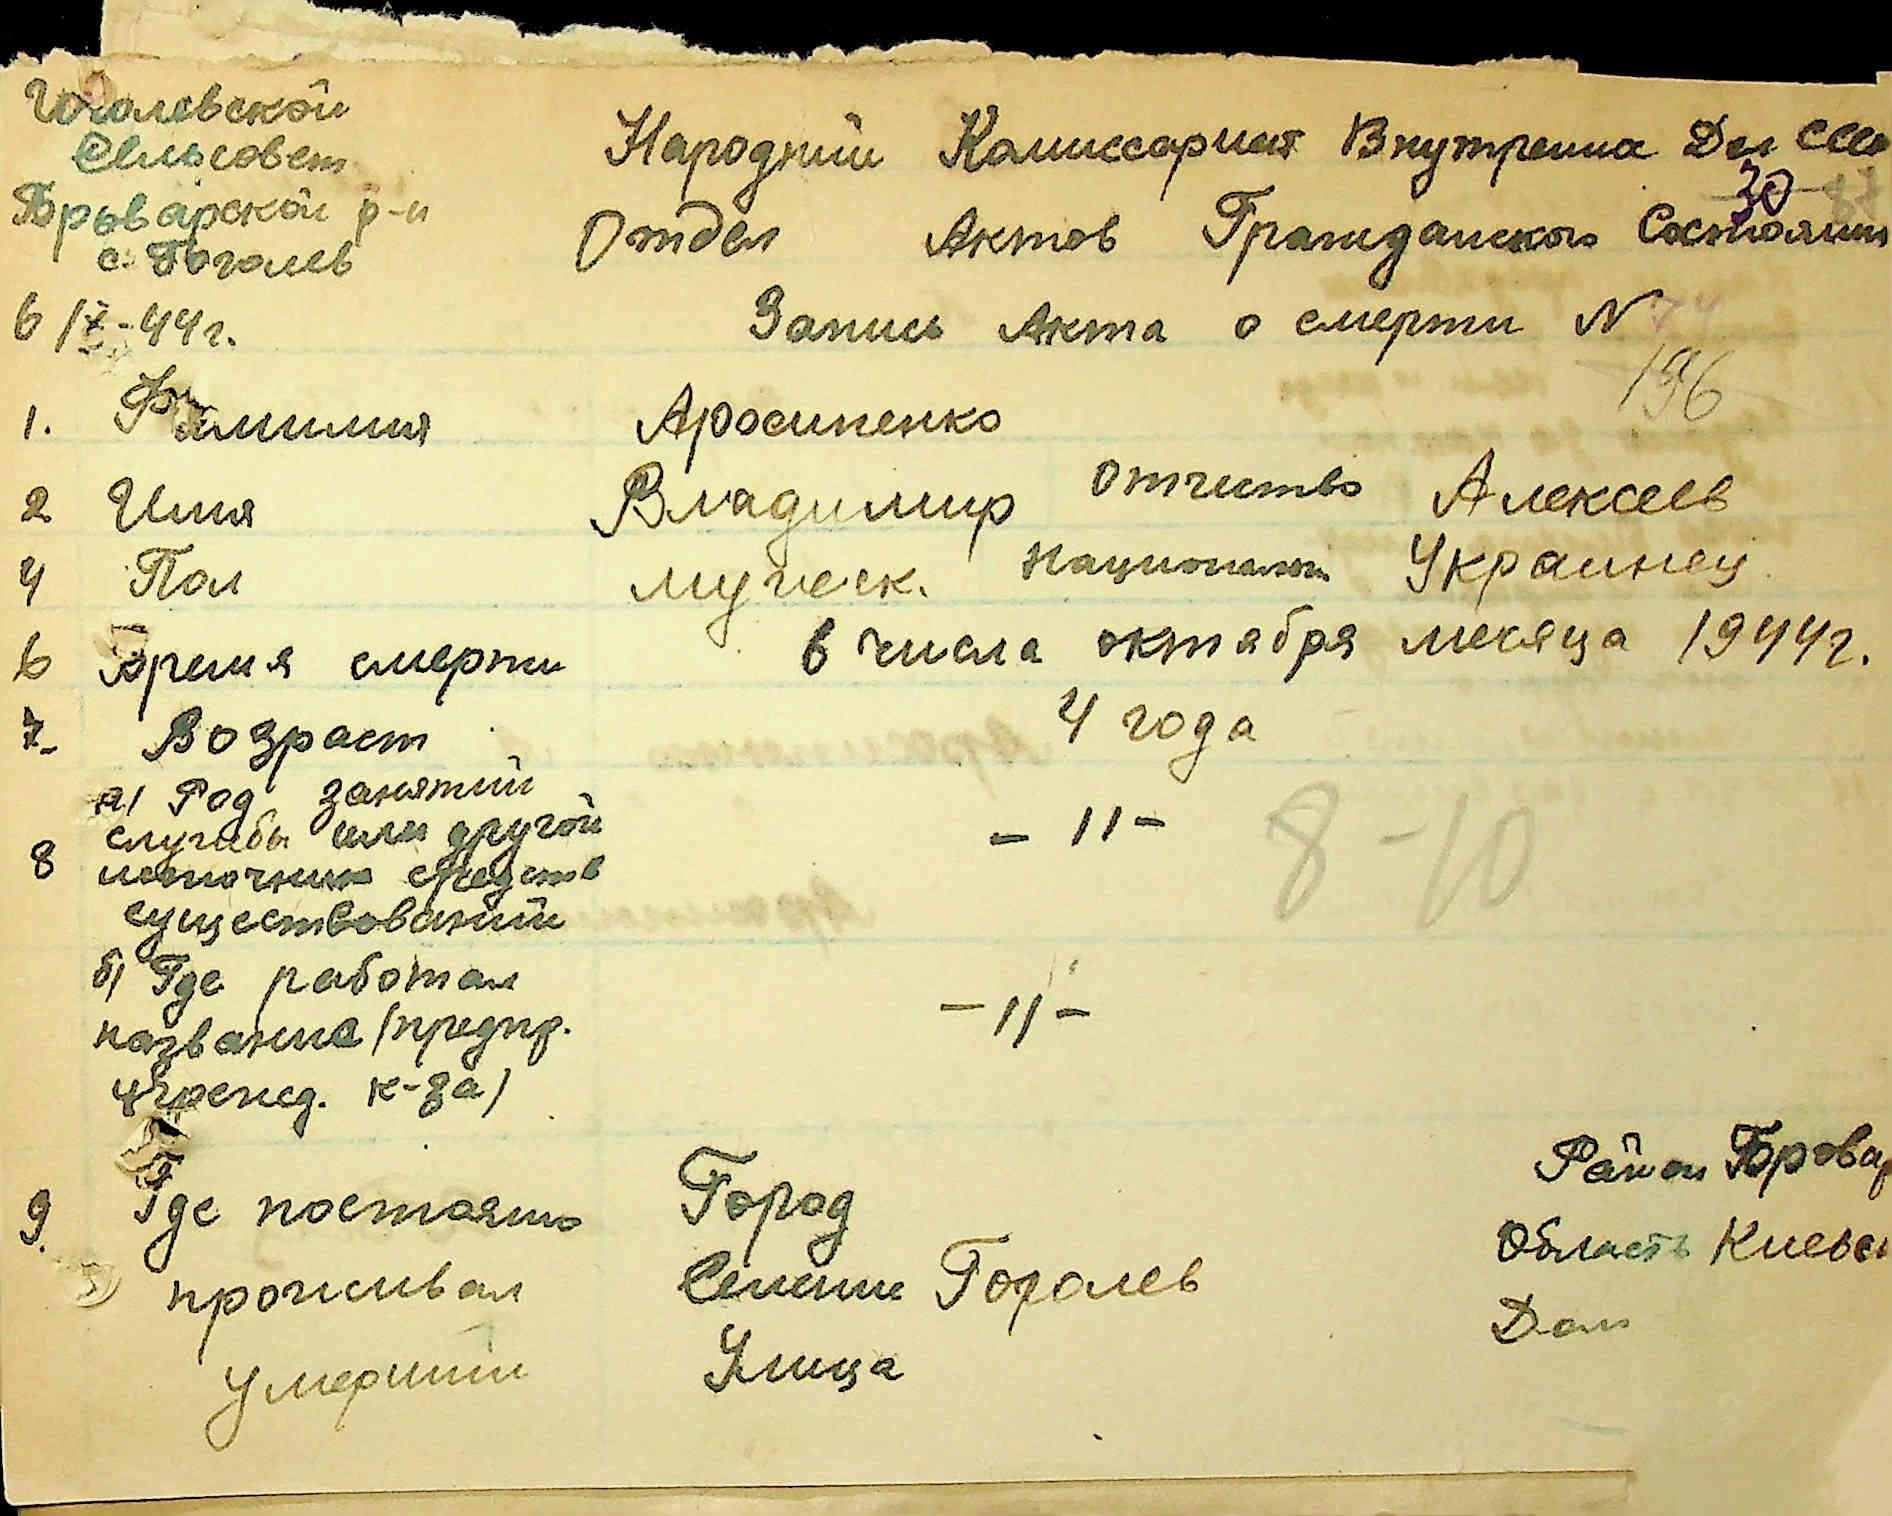 Гоголевской
Сельсовет
Броварской р-н
с. Гоголев
6/X-44г.
Народний Комиссариат Внутренна Дел СССР
30
Отдел Актов Гражданского Состояния
Запись Акта о смерти N 74
196
1. Фамилия Аросипенко
2 Имя Владимир Отчество Алексеев
4 Пол мужеск. Национальн Украинец
6 Время смерти 6 числа октября месяца 1944г.
7. Возраст 4 года
8 а) Род занятий
службы или другой
источник средств
существований
-11-
8-10
б) Где работал
название (предпр.
учрежд. к-за)
-11-
9. Где постоянно
проживал
умерший
Город
Район Бровар
Селение Гоголев
Область Киевск
Улица
Дом